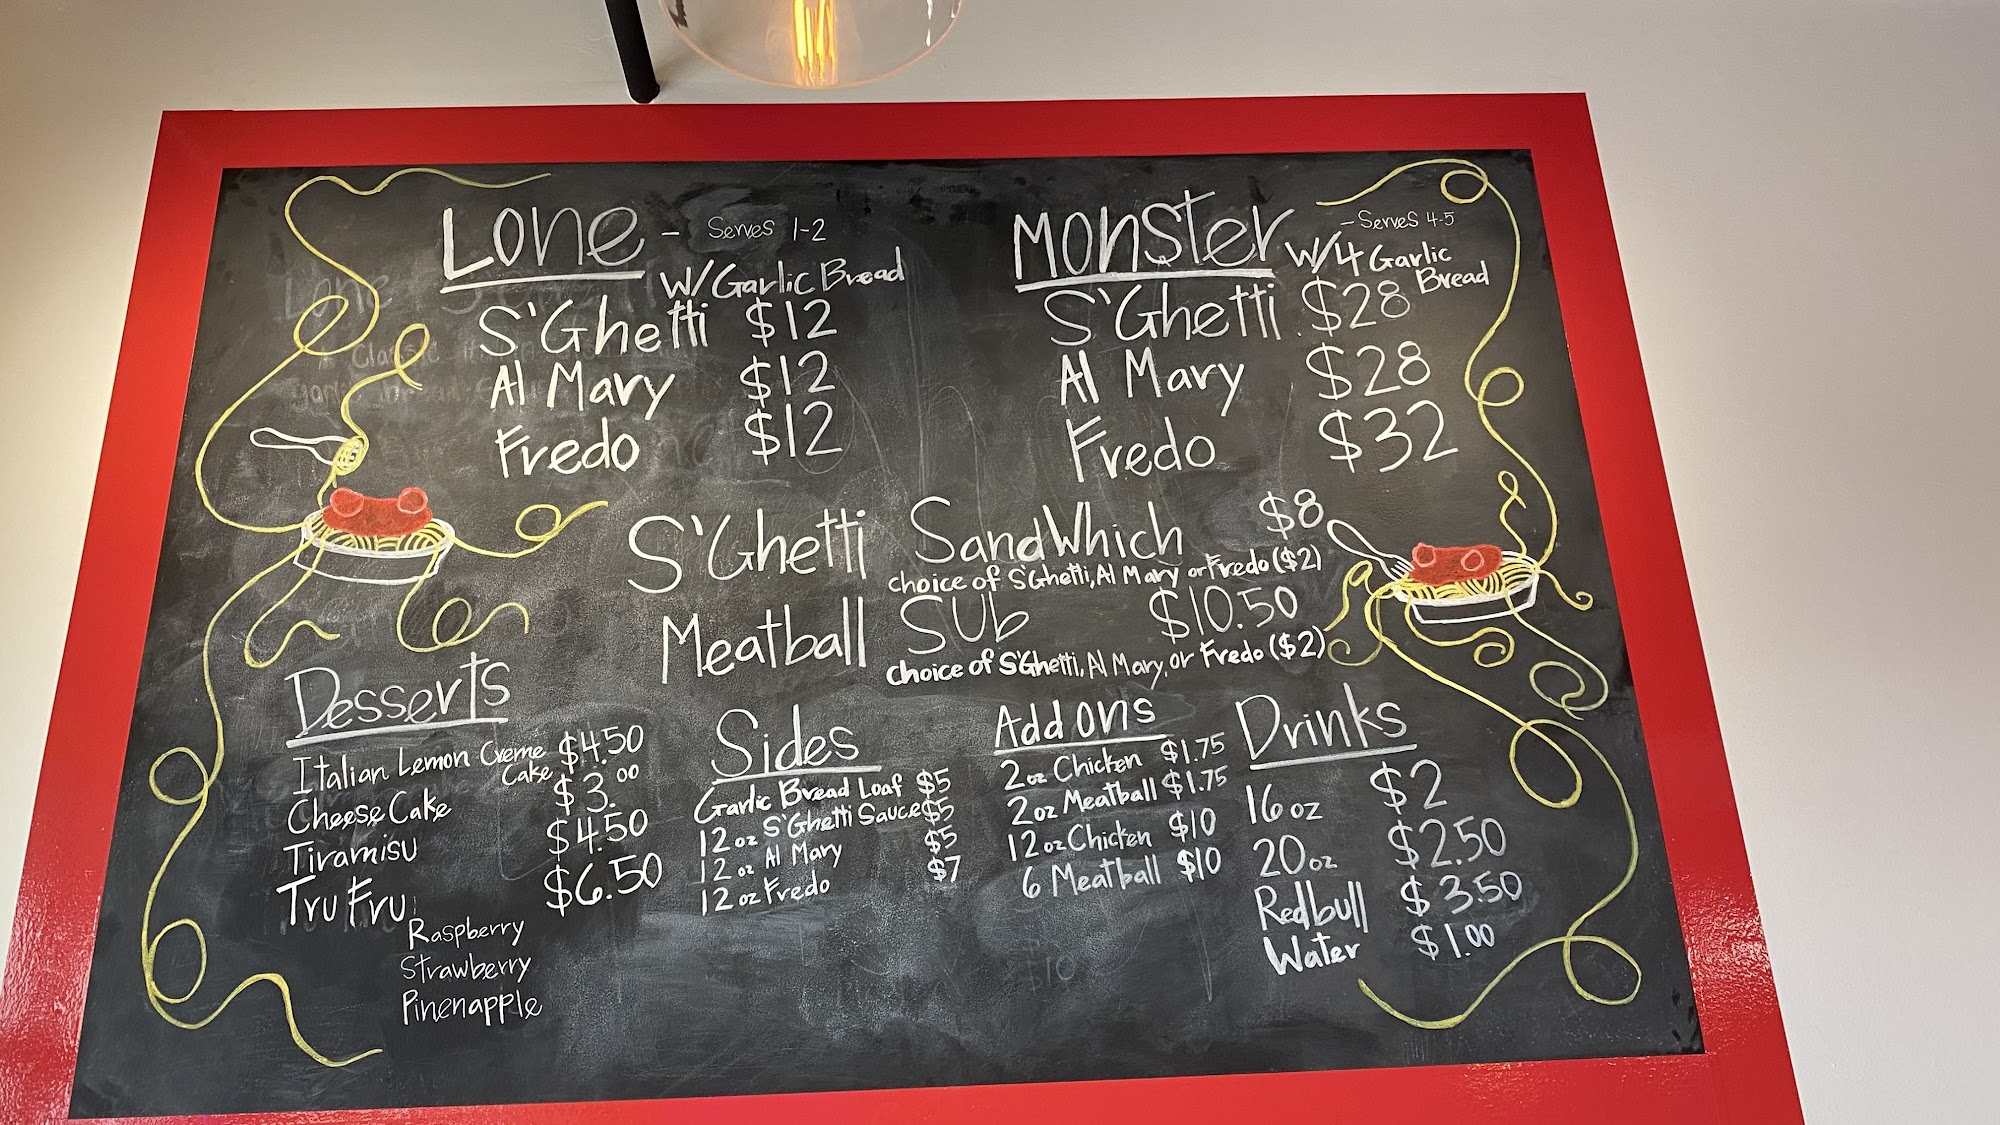 Lone - Serves 1-2
W/ Garlic Bread
S'Ghetti $12
Al Mary $12
Fredo $12
Monster - Serves 4-5
W/4 Garlic
Bread
S'Ghetti $28
Al Mary $28
Fredo $32
S'Ghetti SandWhich $8
choice of S'Ghetti, Al Mary or Fredo ($2)
Meatball Sub $10.50
choice of S'Ghetti, Al Mary, or Fredo ($2)
Desserts
Italian Lemon Creme $4.50
Cake
Cheese Cake $3.00
Tiramisu $4.50
Tru Fru $6.50
Raspberry
Strawberry
Pinenapple
Sides
Garlic Bread Loaf $5
12 oz S'Ghetti Sauce $5
12 oz Al Mary $5
12 oz Fredo $7
Add ons
2 oz Chicken $1.75
2 oz Meatball $1.75
12 oz Chicken $10
6 Meatball $10
$10
Drinks
16 oz $2
20 oz $2.50
Redbull $3.50
Water $1.00